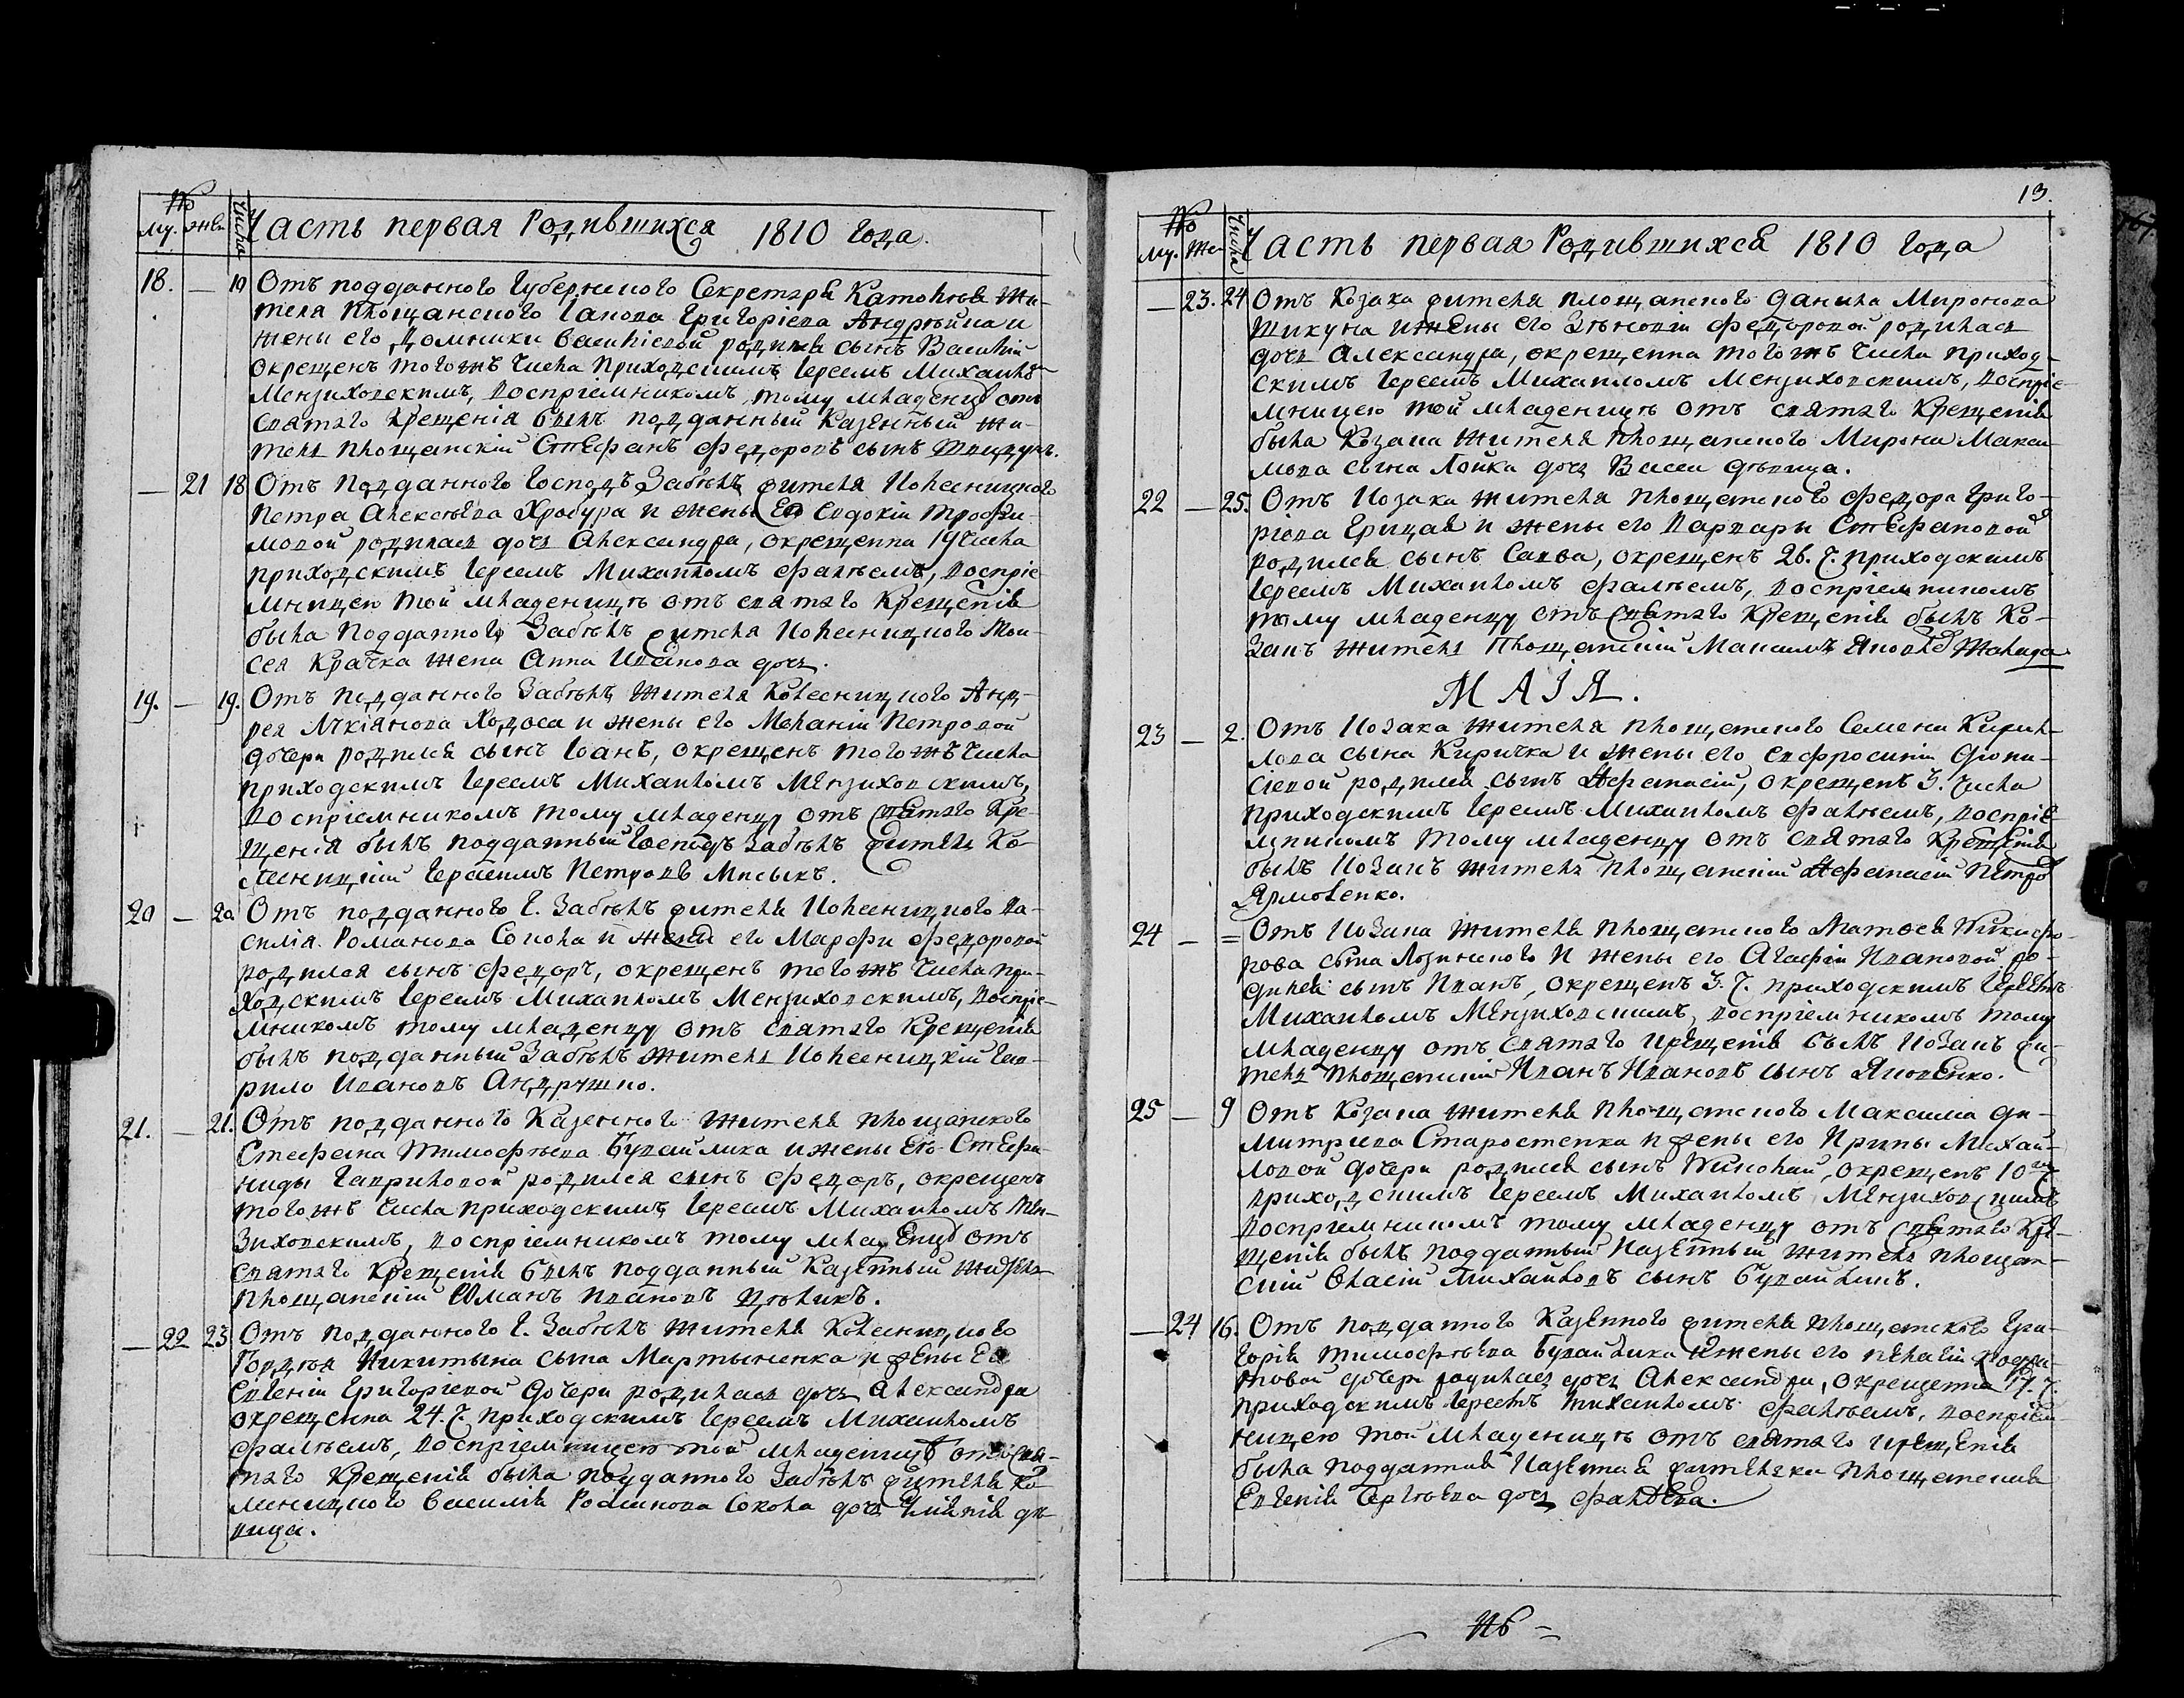 №
му. жен. Числа Часть первая Родившихся 1810 года.
18. — 19 Отъ подданного Губернского Секретаря Жи-
теля Площанского Григоріева Андрѣйца и
жены его Домники Василіевой родился сынъ Василій
окрещенъ того жъ числа Приходскимъ Іереемъ Михаиломъ
Мензиховскимъ, воспріемникомъ тому младенцу отъ
святаго крещенія былъ подданный Казенный жи-
тель Площанскій Стефанъ Федоровъ сынъ
— 21 18 Отъ подданного Господъ Забѣлъ жителя Колесницкого
Петра Алексѣева и жены Его Евдокіи Трофи-
мовой родилась дочь Александра, окрещенна 19 числа
приходскимъ Іереемъ Михаиломъ Фалѣемъ, воспріе-
мницею той младеницѣ отъ святаго Крещенія
была Подданного Забѣлъ жителя Колесницкого Мои-
сея Крачка жена Анна Иванова дочь.
19. — 19. Отъ подданного Забѣлъ жителя Колесницкого Анд-
рея Лукіянова Ходоса и жены его Меланіи Петровой
дочери родился сынъ Іоанъ, окрещенъ того жъ числа
приходскимъ Іереемъ Михаиломъ Мензиховскимъ,
Воспріемникомъ тому младенцу отъ святаго Кре-
щенія былъ подданный Господъ Забѣлъ житель Ко-
лесницкій Герасимъ Петровъ Мисыкъ.
20 — 20 Отъ подданного Г. Забѣлъ жителя Колесницкого Ва-
силія Романова Сокола и жены его Марфы Федоровой
родился сынъ Федоръ, окрещенъ того жъ числа при-
ходскимъ Іереемъ Михаиломъ Мензиховскимъ, воспріе-
мникомъ тому младенцу отъ святаго Крещенія
былъ подданный Забѣлъ житель Колесницкій Гав-
рило Ивановъ Андрушко.
21. — 21. Отъ подданного Казенного жителя площанского
Стефана Тимофѣева Будайлика и жены Его Стефа-
ниды Гавриловой родился сынъ Федоръ, окрещенъ
того жъ числа приходскимъ Іереемъ Михаиломъ Мен-
зиховскимъ, воспріемникомъ тому младенцу отъ
святаго Крещенія былъ подданный Казенный житель
Площанскій Юманъ Ивановъ Цѣликъ.
— 22 23 Отъ подданного Г. Забѣлъ жителя Колесницкого
Гордѣя Никитына сына Мартыненка и жены Его
Евгеніи Григоріевой дочери родилась дочь Александра
окрещенна 24. Ч. приходскимъ Іереемъ Михаиломъ
Фалѣемъ, воспріемницею той младеницѣ отъ свя-
таго Крещенія была подданного Забѣлъ жителя Ко-
лесницкого Василія Романова Сокола дочь дѣ-
вица.
13.
№
му. Же. Числа Часть первая Родившихся 1810 года
— 23. 24 Отъ Козака жителя площанского Данила Миронова
Шикуна и жены его Зѣновіи Федоровой родилась
дочь Александра, окрещенна того жъ числа приход-
скимъ Іереемъ Михаиломъ Мензиховскимъ, воспріе-
мницею той младеницѣ отъ святаго Крещенія
была Козака жителя Площанского Мирона Макси-
мова сына Лойка дочь Васса дѣвица.
22 — 25. Отъ Козака жителя площанского Федора Григо-
ріева Грицая и жены его Варвары Стефановой
родился сынъ Савва, окрещенъ 26. Ч. приходскимъ
Іереемъ Михаиломъ Фалѣемъ, воспріемникомъ
тому младенцу отъ святаго Крещенія былъ Ко-
закъ житель Площанскій Максимъ Яковлевъ
МАІЯ.
23 — 2. Отъ Козака жителя площанского Семена Кирил-
лова сына Киричка и жены его Евфросиніи Діони-
сіевой родился сынъ Афанасій, окрещенъ 3. Числа
приходскимъ Іереемъ Михаиломъ Фалѣемъ, воспріе-
мникомъ тому младенцу отъ святаго Крещенія
былъ Козакъ житель Площанскій Афанасій Петров
Ярмоленко.
24 — = Отъ Козака жителя площанского Матфея Никифо-
рова сына Лозинского и жены его Агафіи Ивановой ро-
дился сынъ Иванъ, окрещенъ 3. Ч. приходскимъ Іереемъ
Михаиломъ Мензиховскимъ, воспріемникомъ тому
младенцу отъ святаго крещенія былъ Козакъ жи-
тель площанскій Иванъ Ивановъ сынъ Яковенко.
25 — 9 Отъ Козака жителя площанского Максима Ди-
митріева Старостенка и жены его Ирины Михай-
ловой дочери родился сынъ Николай, окрещенъ 10го Ч.
приходскимъ Іереемъ Михаиломъ Мензиховскимъ
Воспріемникомъ тому младенцу отъ святаго Кре-
щенія былъ подданный Казенный житель площан-
скій Власій Михайловъ сынъ Будайликъ.
— 24 16. Отъ подданного Казенного жителя площанского Гри-
горія Тимофѣева Будайлика и жены его Пелагіи Кодра-
товой дочери родилась дочь Александра, окрещенна 17. Ч.
приходскимъ Іереемъ Михаиломъ Фалѣемъ, воспріем-
ницею той младеницѣ отъ святаго крещенія
была подданная Казенная жителька площанская
Евгенія Сергѣева дочь Фалѣева.